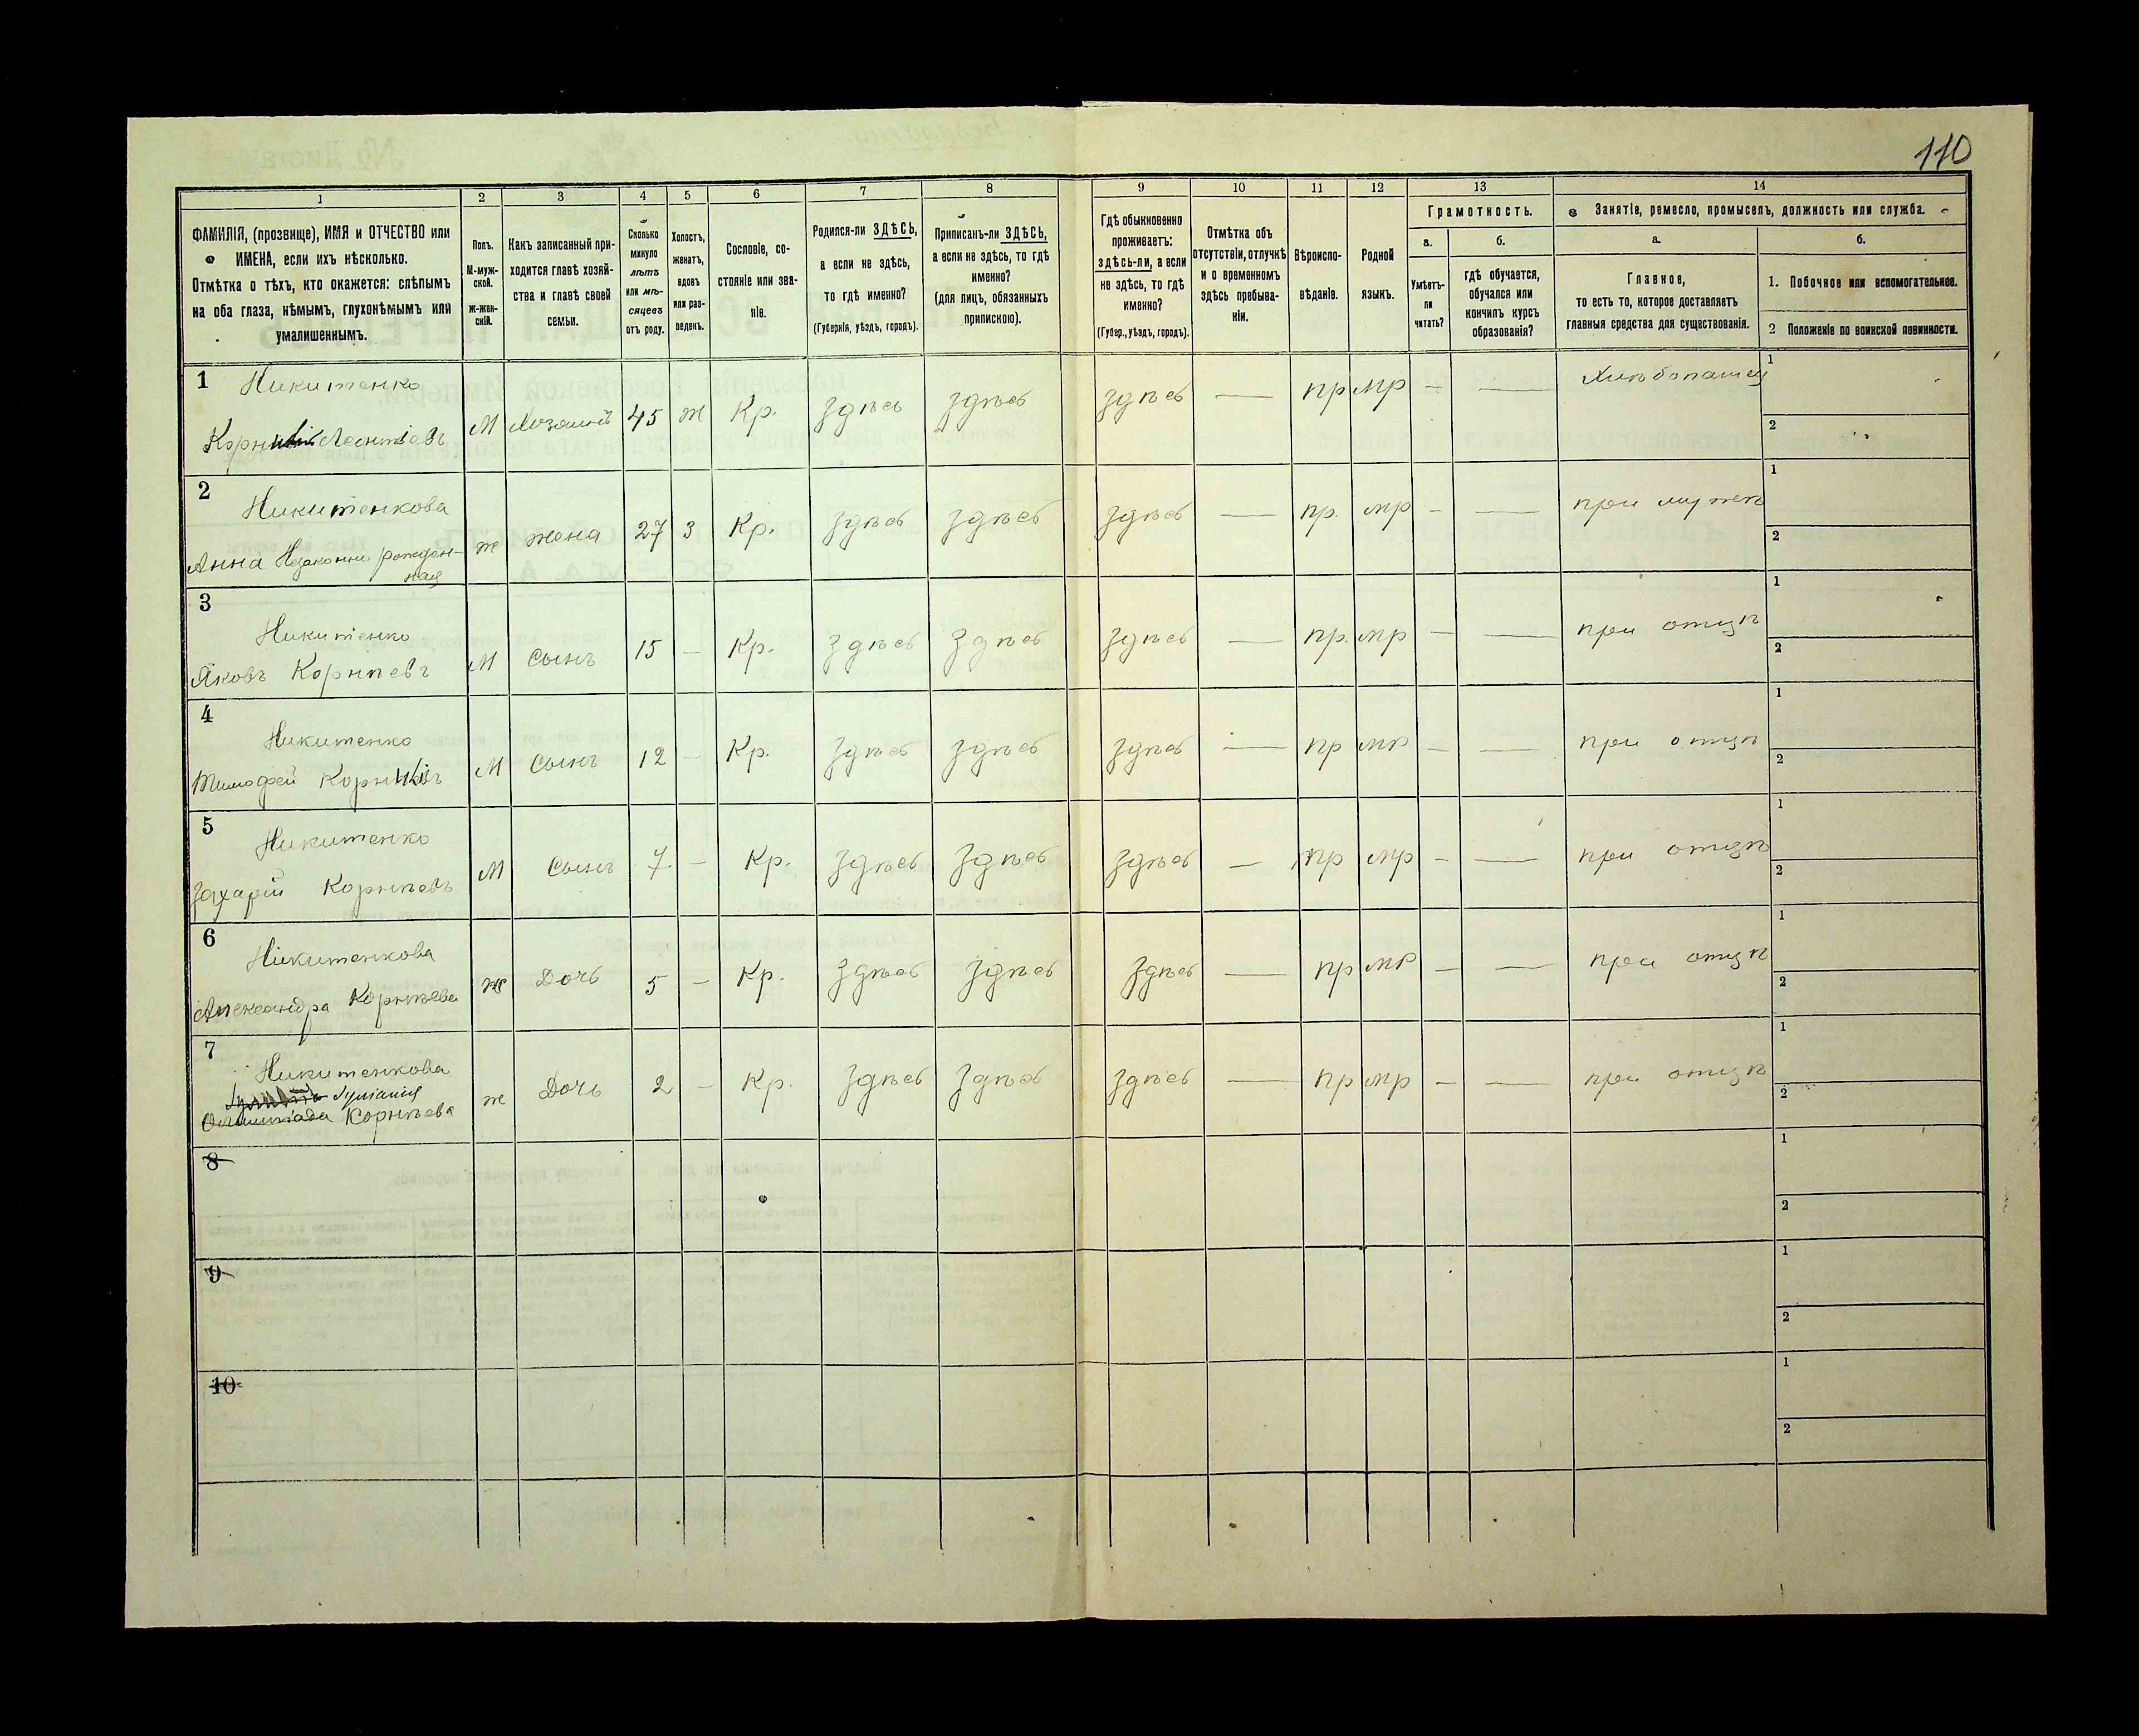 110
1 2 3 4 5 6 7 8 9 10 11 12 13 14
ФАМИЛІЯ, (прозвище), ИМЯ и ОТЧЕСТВО или
ИМЕНА, если ихъ нѣсколько.
Отмѣтка о тѣхъ, кто окажется: слѣпымъ
на оба глаза, нѣмымъ, глухонѣмымъ или
умалишеннымъ.
Полъ.
М-муж-
ской.
ж-жен-
скій.
Какъ записанный при-
ходится главѣ хозяй-
ства и главѣ своей
семьи.
Сколько
минуло
лѣтъ
или мѣ-
сяцевъ
отъ роду.
Холостъ,
женатъ,
вдовъ
или раз-
веденъ.
Сословіе, со-
стояніе или зва-
ніе.
Родился-ли ЗДѢСЬ,
а если не здѣсь,
то гдѣ именно?
(Губернія, уѣздъ, городъ).
Приписанъ-ли ЗДѢСЬ,
а если не здѣсь, то гдѣ
именно?
(для лицъ, обязанныхъ
припискою).
Гдѣ обыкновенно
проживаетъ:
здѣсь-ли, а если
не здѣсь, то гдѣ
именно?
(Губер., уѣздъ, городъ).
Отмѣтка объ
отсутствіи, отлучкѣ
и о временномъ
здѣсь пребыва-
ніи.
Вѣроиспо-
вѣданіе.
Родной
языкъ.
Грамотность.
а.
Умѣетъ-
ли
читать?
б.
гдѣ обучается,
обучался или
кончилъ курсъ
образованія?
Занятіе, ремесло, промыселъ, должность или служба.
а.
Главное,
то есть то, которое доставляетъ
главныя средства для существованія.
б.
1. Побочное или вспомогательное.
2 Положеніе по воинской повинности.
1 Никитенко
Корнилій Леонтіевъ М Хозяинъ 45 ж Кр. здѣсь здѣсь здѣсь — пр мр - — Хлѣбопашец 1
2
2 Никитенкова
Анна Незаконно рожден-
ная ж жена 27 з Кр. здѣсь здѣсь здѣсь — пр. мр - — при мужѣ 1
2
3 Никитенко
Яковъ Корнѣевъ М Сынъ 15 - Кр. здѣсь здѣсь здѣсь — пр. мр - — при отцѣ 1
2
4 Никитенко
Тимофей М Сынъ 12 - Кр. здѣсь здѣсь здѣсь — пр мр - — при отцѣ 1
2
5 Никитенко
Захарій Корнѣевъ М Сынъ 7. - Кр. здѣсь здѣсь здѣсь — пр мр - — при отцѣ 1
2
6 Никитенкова
Александра Корнѣева ж Дочь 5 - Кр. здѣсь здѣсь здѣсь — пр мр - — при отцѣ 1
2
7 Никитенкова
Іуліанія
Корнѣева ж Дочь 2 - Кр. здѣсь здѣсь здѣсь — пр мр - — при отцѣ 1
2
8 1
2
9 1
2
10 1
2